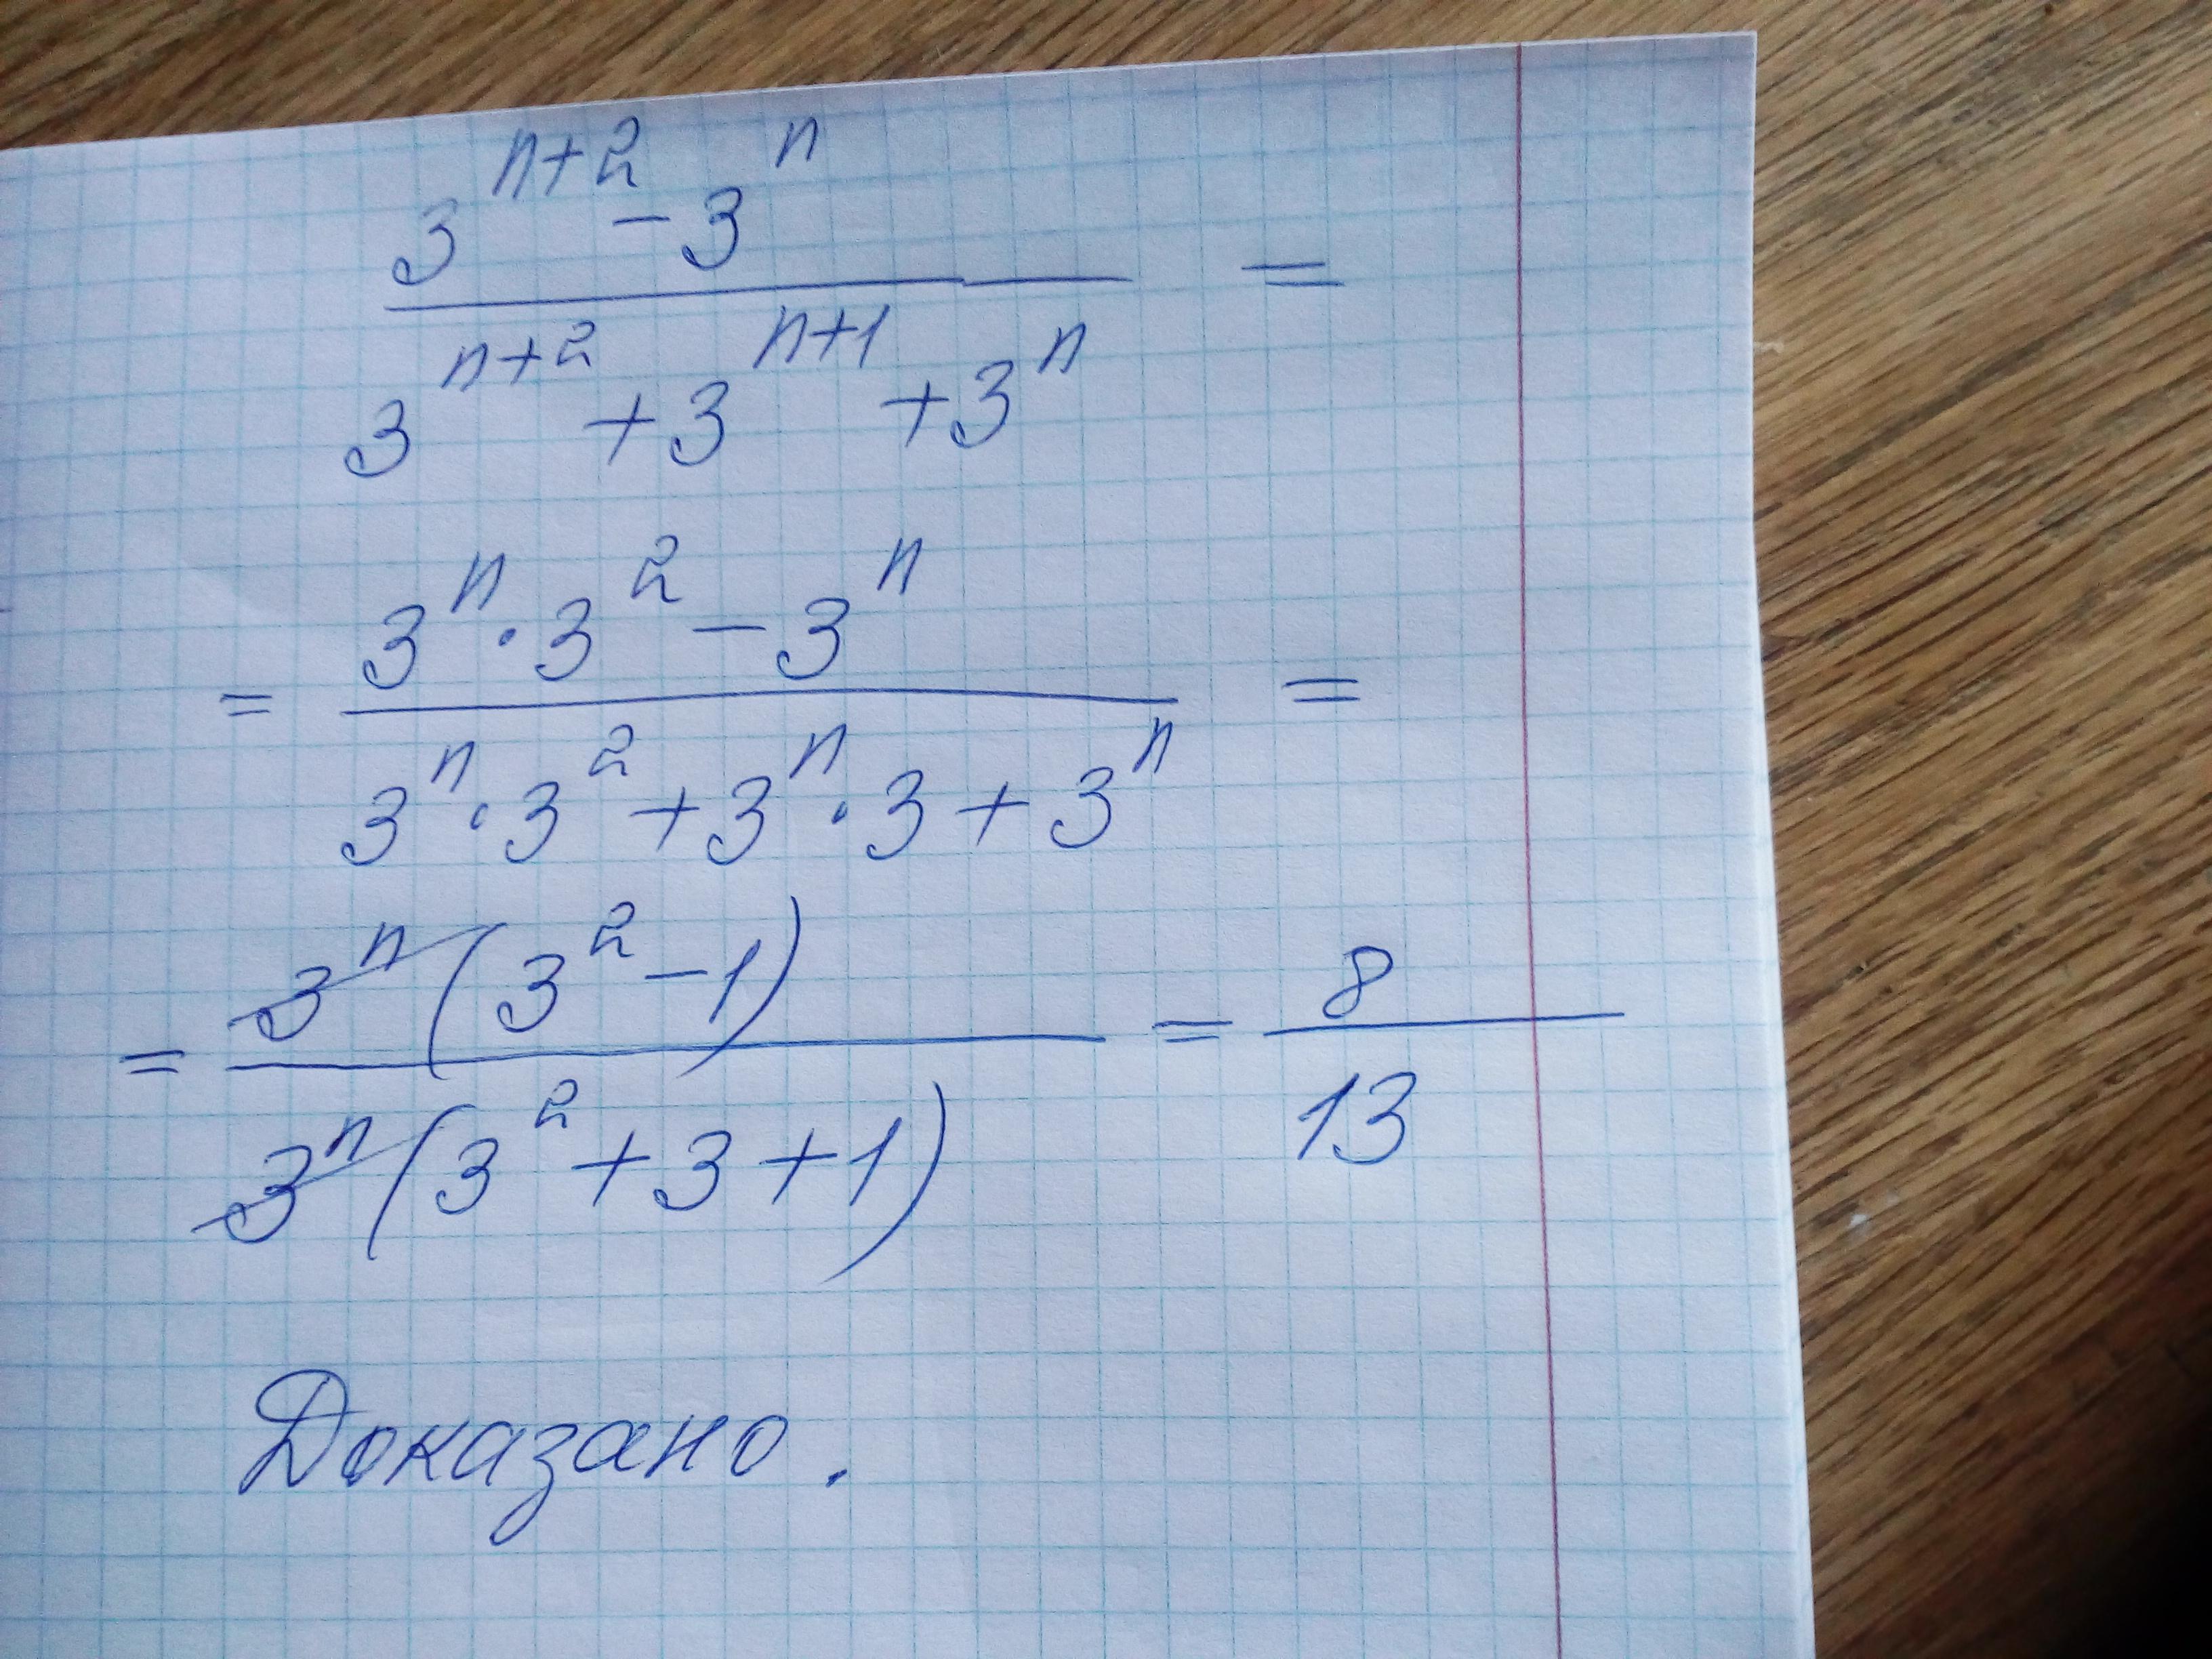 3^{n+2} - 3^n
3^{n+2} + 3^{n+1} + 3^n =
= 3^n · 3^2 - 3^n
3^n · 3^2 + 3^n · 3 + 3^n =
= 3^n (3^2 - 1)
3^n (3^2 + 3 + 1) = 8
13
Доказано.